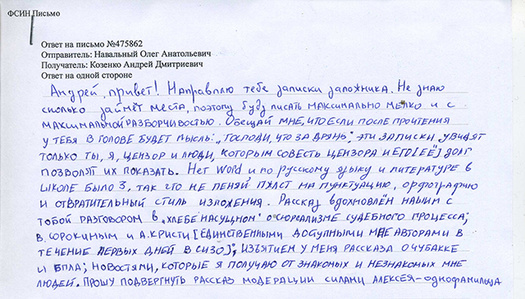 ФСИН Письмо
Ответ на письмо №475862
Отправитель: Навальный Олег Анатольевич
Получатель: Козенко Андрей Дмитриевич
Ответ на одной стороне
Андрей, привет! Направляю тебе записки заложника. Не знаю
сколько займёт места, поэтому буду писать максимально мелко и с
максимальной разборчивостью. Обещай мне, что если после прочтения
у тебя в голове будет мысль: "Господи, что за дрянь", эти записки увидят
только ты, я, цензор и люди, которым совесть цензора и его[её] долг
позволят их показать. Нет Word, и по русскому языку и литературе в
школе было 3, так что не пеняй пжлст на пунктуацию, орфографию
и отвратительный стиль изложения. Рассказ вдохновлён нашим с
тобой разговором в "Хлебе насущном" о сюрреализме судебного процесса;
В. Сорокиным и А. Кристи [единственными доступными мне авторами в
течение первых дней в сизо]; изъятием у меня рассказа о чубакке
и БПЛА; новостями, которые я получаю от знакомых и незнакомых мне
людей. Прошу подвергнуть рассказ модерации силами Алексея-однофамильца